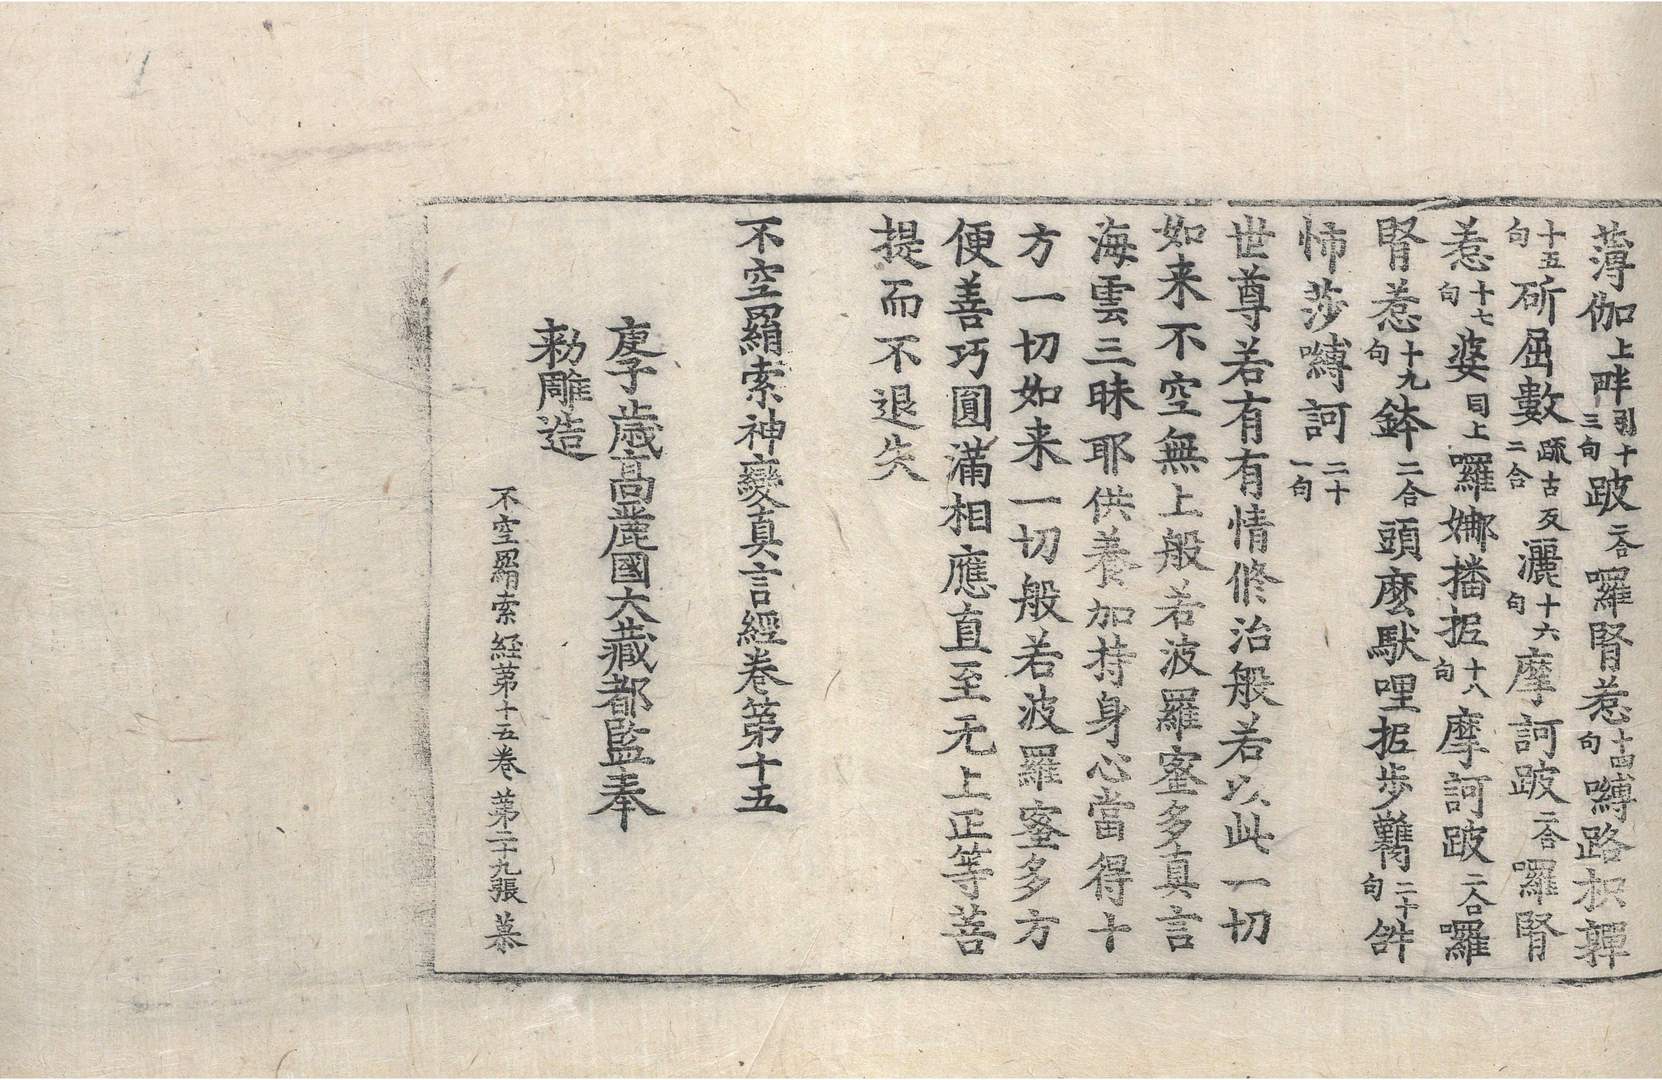 薄伽上畔引十三句跛二合囉腎惹十四句嚩路枳䩻
十五句斫屈數二合疏古反灑十六句摩訶跛二合囉腎
惹十七句婆自上囉娜播抳十八句摩訶跛二合囉
腎惹十九句鉢二合頭麽馱哩抳步䧴二十句
怖莎嚩訶二十一句
世尊若有有情修治般若以此一切
如来不空無上般若波羅蜜多真言
海雲三昧耶供養加持身心當得十
方一切如来一切般若波羅蜜多方
便善巧圓滿相應直至无上正等菩
提而不退失
不空羂索神變真言經卷第十五
庚子歲高麗國大藏都監奉
勑雕造
不空羂索経苐十五卷 苐二十九張 慕